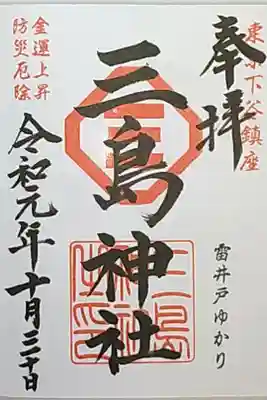 東京下谷鎮座
奉拝
雷井戸ゆかり
三島神社
三島
神社
之印
金運上昇
防災厄除
令和元年十月三十日